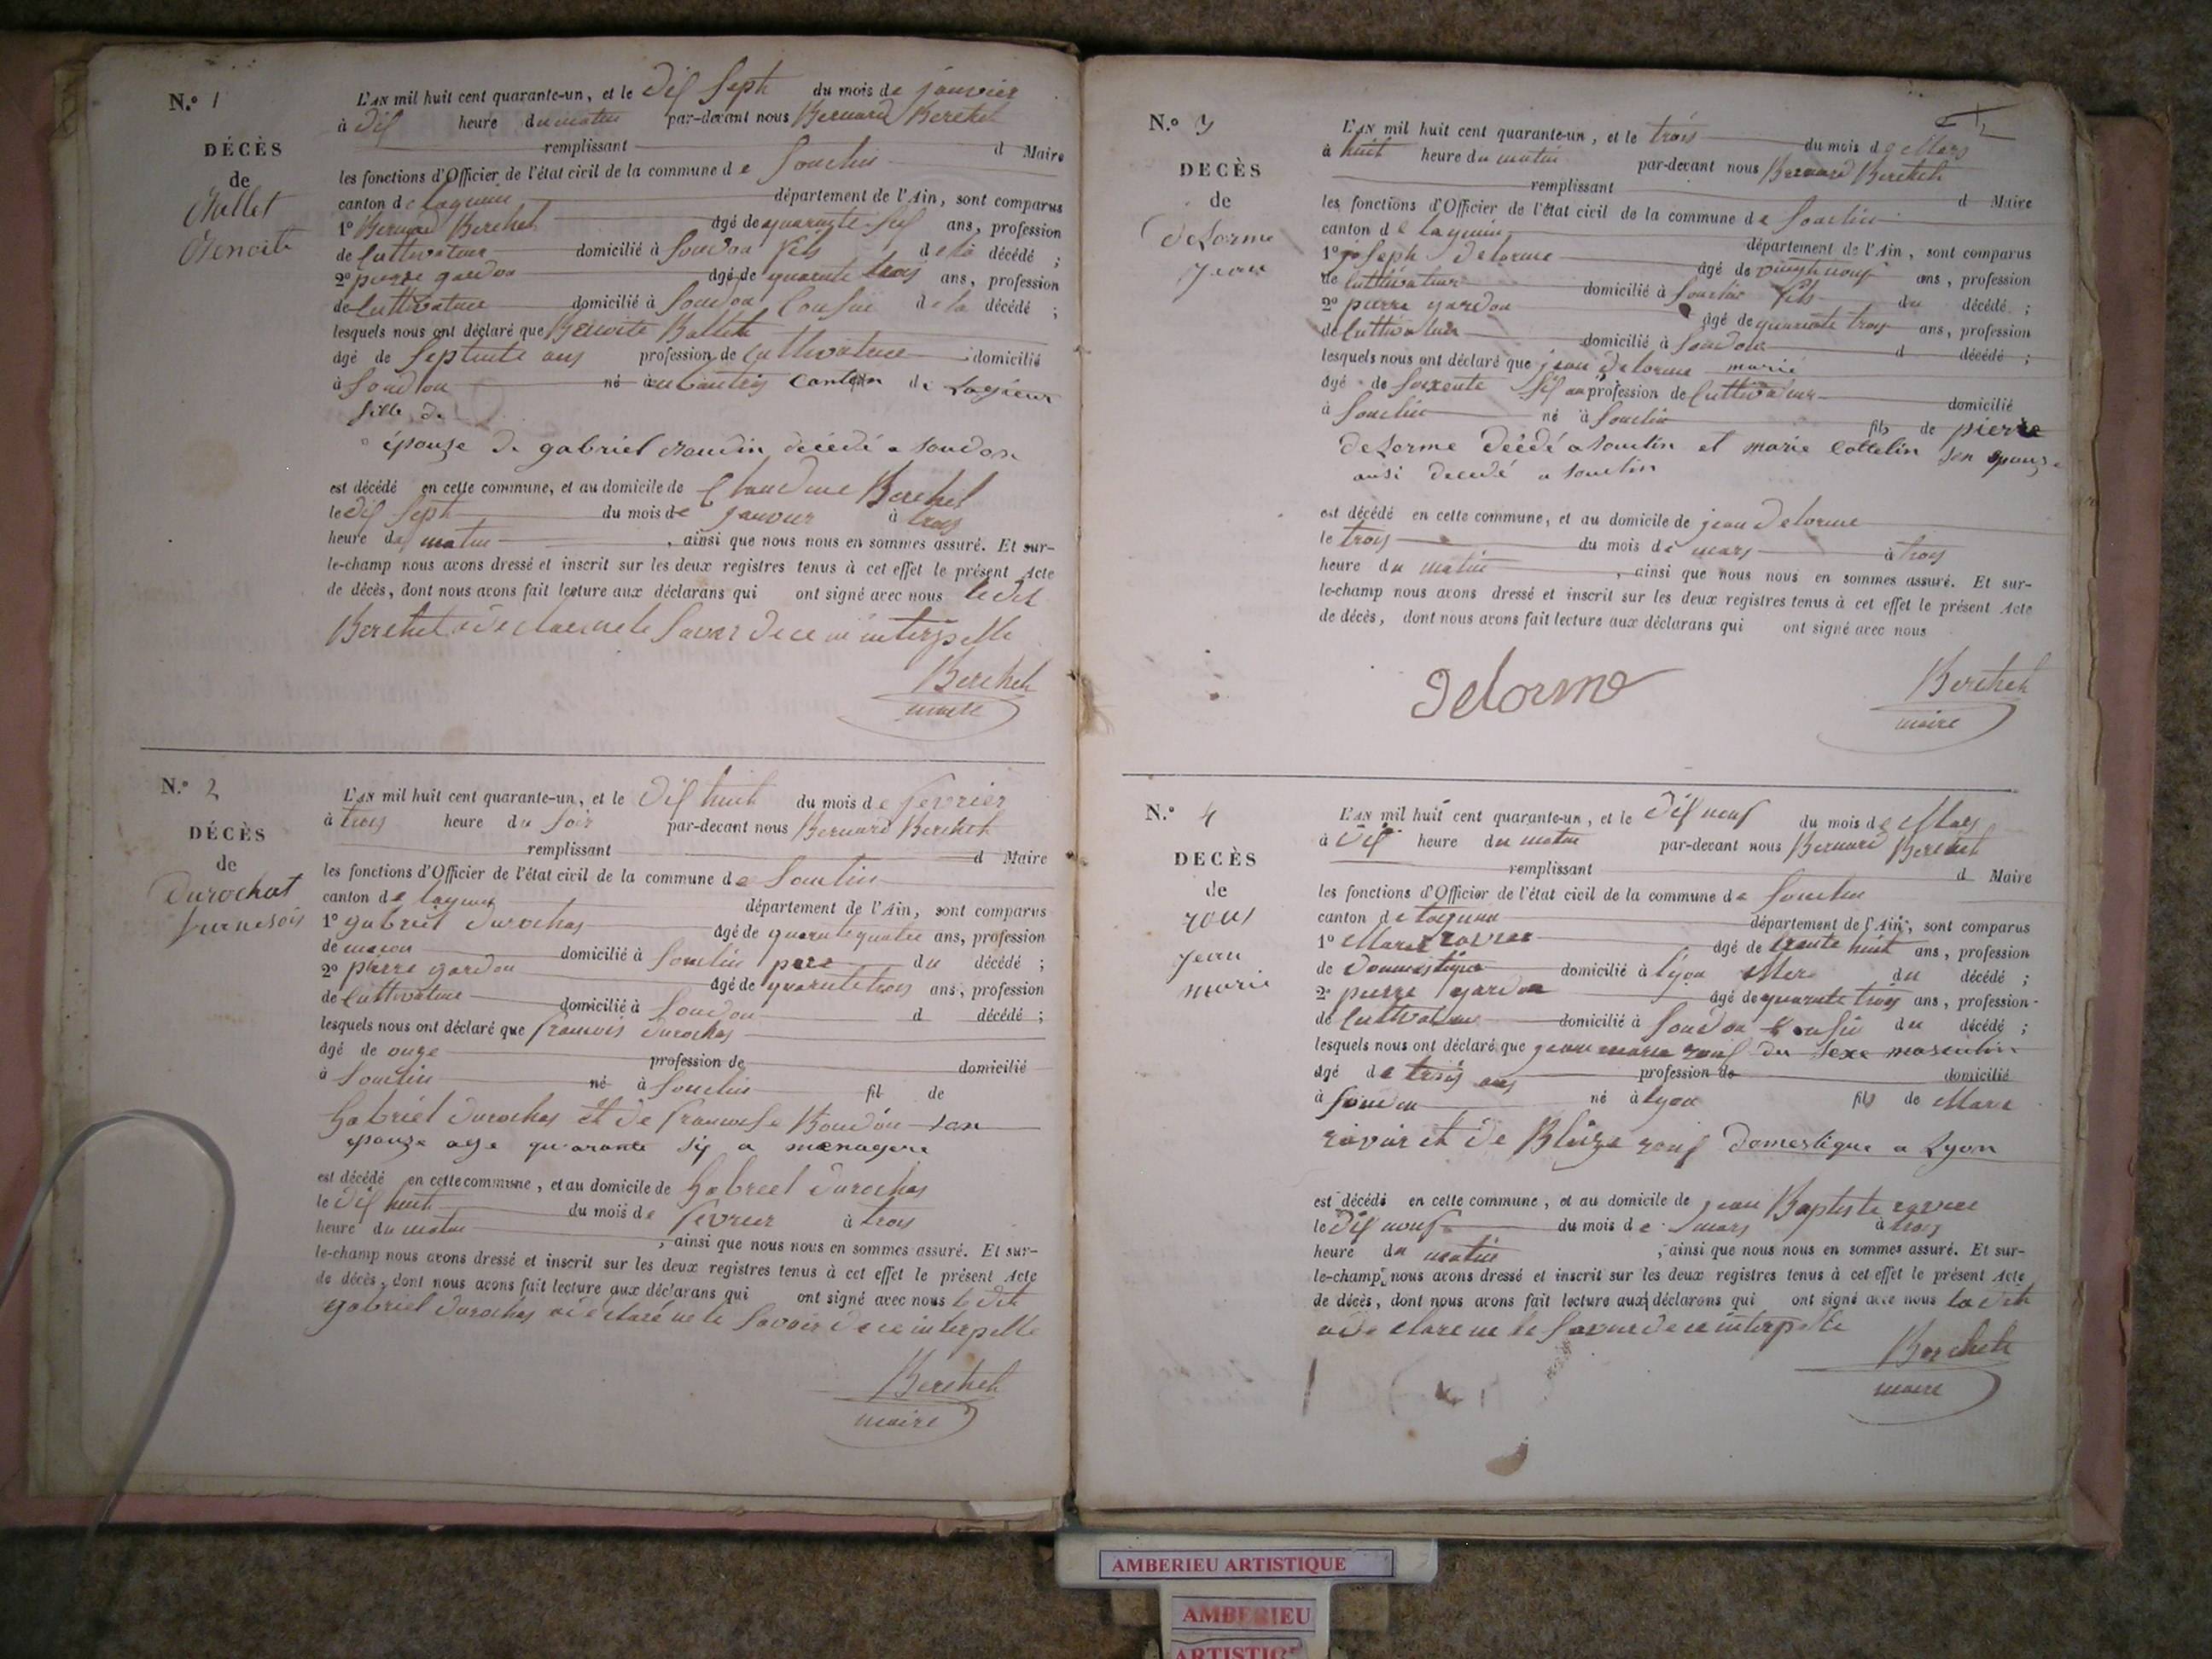 N.º 1
DÉCÈS
de
Ballet
Benoite
L'AN mil huit cent quarante-un, et le dix sept du mois de janvier
à dix heure du matin par-devant nous Bernard Berchet
remplissant d Maire
les fonctions d'Officier de l'état civil de la commune de Souclin
canton de lagnieu département de l'Ain, sont comparus
1º Bernard Berchet âgé de quarante six ans, profession
de Cultivateur domicilié à Soudon fils de la décédé ;
2º pierre gardon âgé de quarante trois ans, profession
de Cultivateur domicilié à Soudon Cousin de la décédé ;
lesquels nous ont déclaré que Benoite Ballet
âgé de Septente ans profession de Cultivatrice domicilié
à Soudon né à canton de Lagnieu
fille de
épouze de gabriel décédé a soudon
est décédé en cette commune, et au domicile de Claudine Berchet
le dix sept du mois de janvier à trois
heure du matin , ainsi que nous nous en sommes assuré. Et sur-
le-champ nous avons dressé et inscrit sur les deux registres tenus à cet effet le présent Acte
de décès, dont nous avons fait lecture aux déclarans qui ont signé avec nous le dit
Berchet a declaré ne le Savoir de ce interpellé
Berchet
maire
N.º 2
DÉCÈS
de
Durochat
francois
L'AN mil huit cent quarante-un, et le dix huit du mois de fevrier
à trois heure du Soir par-devant nous Bernard Berchet
remplissant d Maire
les fonctions d'Officier de l'état civil de la commune de Souclin
canton de lagnieu département de l'Ain, sont comparus
1º gabriel durochas âgé de quarante quatre ans, profession
de macon domicilié à Souclin pere du décédé ;
2º pierre gardon âgé de quarante trois ans, profession
de Cultivateur domicilié à Soudon d décédé ;
lesquels nous ont déclaré que francois durochas
âgé de onze profession de domicilié
à Souclin né à Souclin fil de
Gabriel durochas et de francoise Boudon son
epouze age quarante six a menagere
est décédé en cette commune, et au domicile de Gabriel durochas
le dix huit du mois de fevrier à trois
heure du matin , ainsi que nous nous en sommes assuré. Et sur-
le-champ nous avons dressé et inscrit sur les deux registres tenus à cet effet le présent Acte
de décès, dont nous avons fait lecture aux déclarans qui ont signé avec nous le dit
gabriel durochas a declaré ne le Savoir de ce interpellé
Berchet
maire
N.º 3
DECÈS
de
deLorme
jean
L'AN mil huit cent quarante-un, et le trois du mois de Mars
à huit heure du matin par-devant nous Bernard Berchet
remplissant d Maire
les fonctions d'Officier de l'état civil de la commune de Souclin
canton de lagnieu département de l'Ain, sont comparus
1º joseph delorme âgé de vingt neuf ans, profession
de Cultivateur domicilié à Souclin fils du décédé ;
2º pierre gardon âgé de quarante trois ans, profession
de Cultivateur domicilié à Soudon d décédé ;
lesquels nous ont déclaré que jean delorme marié
âgé de soixente six an profession de Cultivateur domicilié
à Souclin né à Souclin fils de pierre
deLorme décédé a souclin et marie Cottelin son epouze
ausi decedé a souclin
est décédé en cette commune, et au domicile de jean delorme
le trois du mois de mars à trois
heure du matin , ainsi que nous nous en sommes assuré. Et sur-
le-champ nous avons dressé et inscrit sur les deux registres tenus à cet effet le présent Acte
de décès, dont nous avons fait lecture aux déclarans qui ont signé avec nous
Delorme
Berchet
maire
N.º 4
DECÈS
de
roux
jean
marie
L'AN mil huit cent quarante-un, et le dix neuf du mois de Mars
à dix heure du matin par-devant nous Bernard Berchet
remplissant d Maire
les fonctions d'Officier de l'état civil de la commune de Souclin
canton de lagnieu département de l'Ain, sont comparus
1º Marie âgé de trente huit ans, profession
de domestique domicilié à lyon Mere du décédé ;
2º pierre gardon âgé de quarante trois ans, profession
de Cultivateur domicilié à Soudon Cousin du décédé ;
lesquels nous ont déclaré que jean marie roux du sexe masculin
âgé de trois ans profession de domicilié
à soudon né à lyon fils de Marie
ravoir et de Blaize roux domestique a Lyon
est décédé en cette commune, et au domicile de jean Baptiste
le dix neuf du mois de mars à trois
heure du matin , ainsi que nous nous en sommes assuré. Et sur-
le-champ nous avons dressé et inscrit sur les deux registres tenus à cet effet le présent Acte
de décès, dont nous avons fait lecture aux déclarans qui ont signé avec nous la dite
a declaré ne le Savoir de ce interpellé
Berchet
maire
AMBERIEU ARTISTIQUE
AMBERIEU
ARTISTIQUE